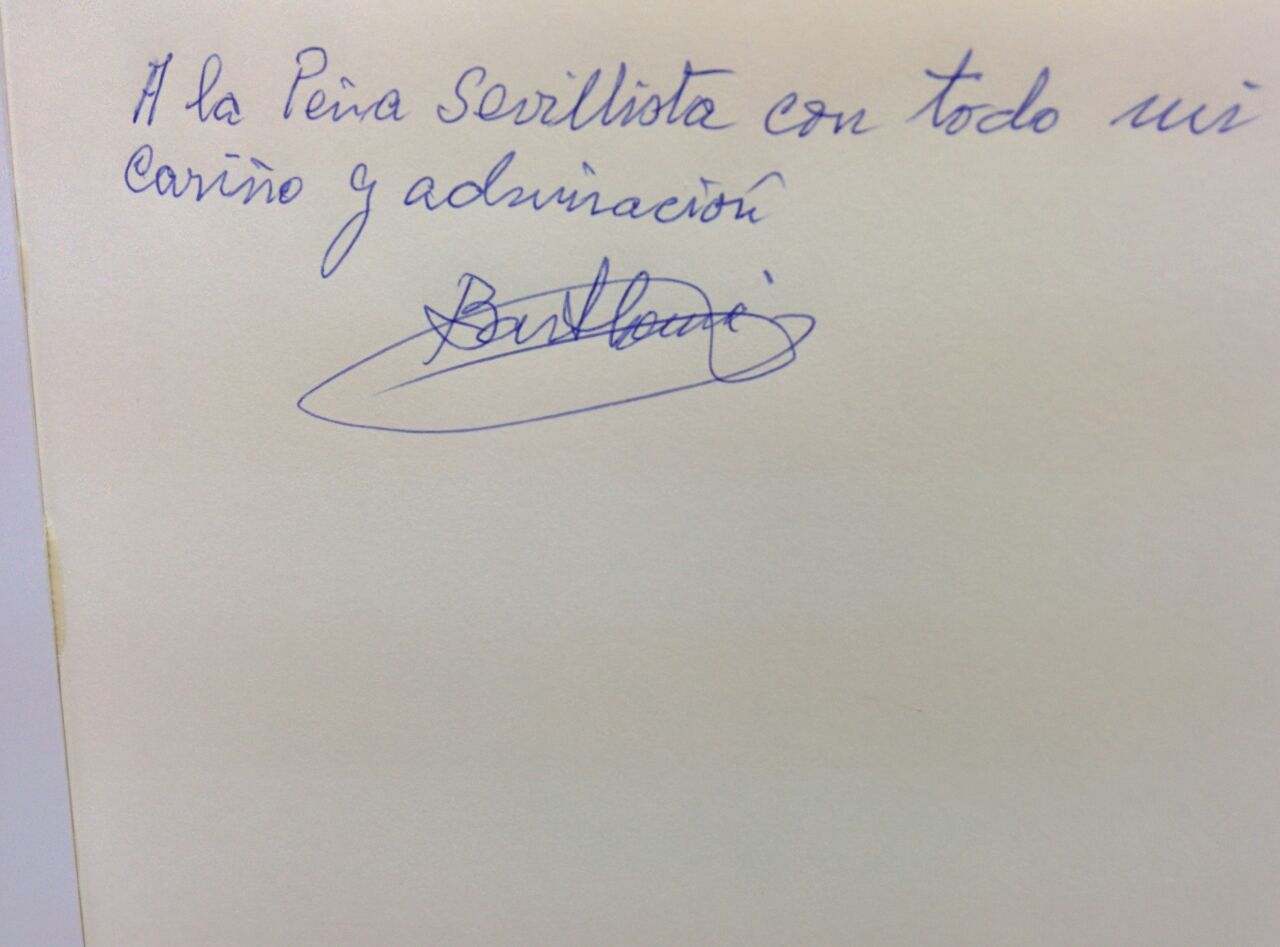 A la Peña Sevillista con todo mi
cariño y admiración